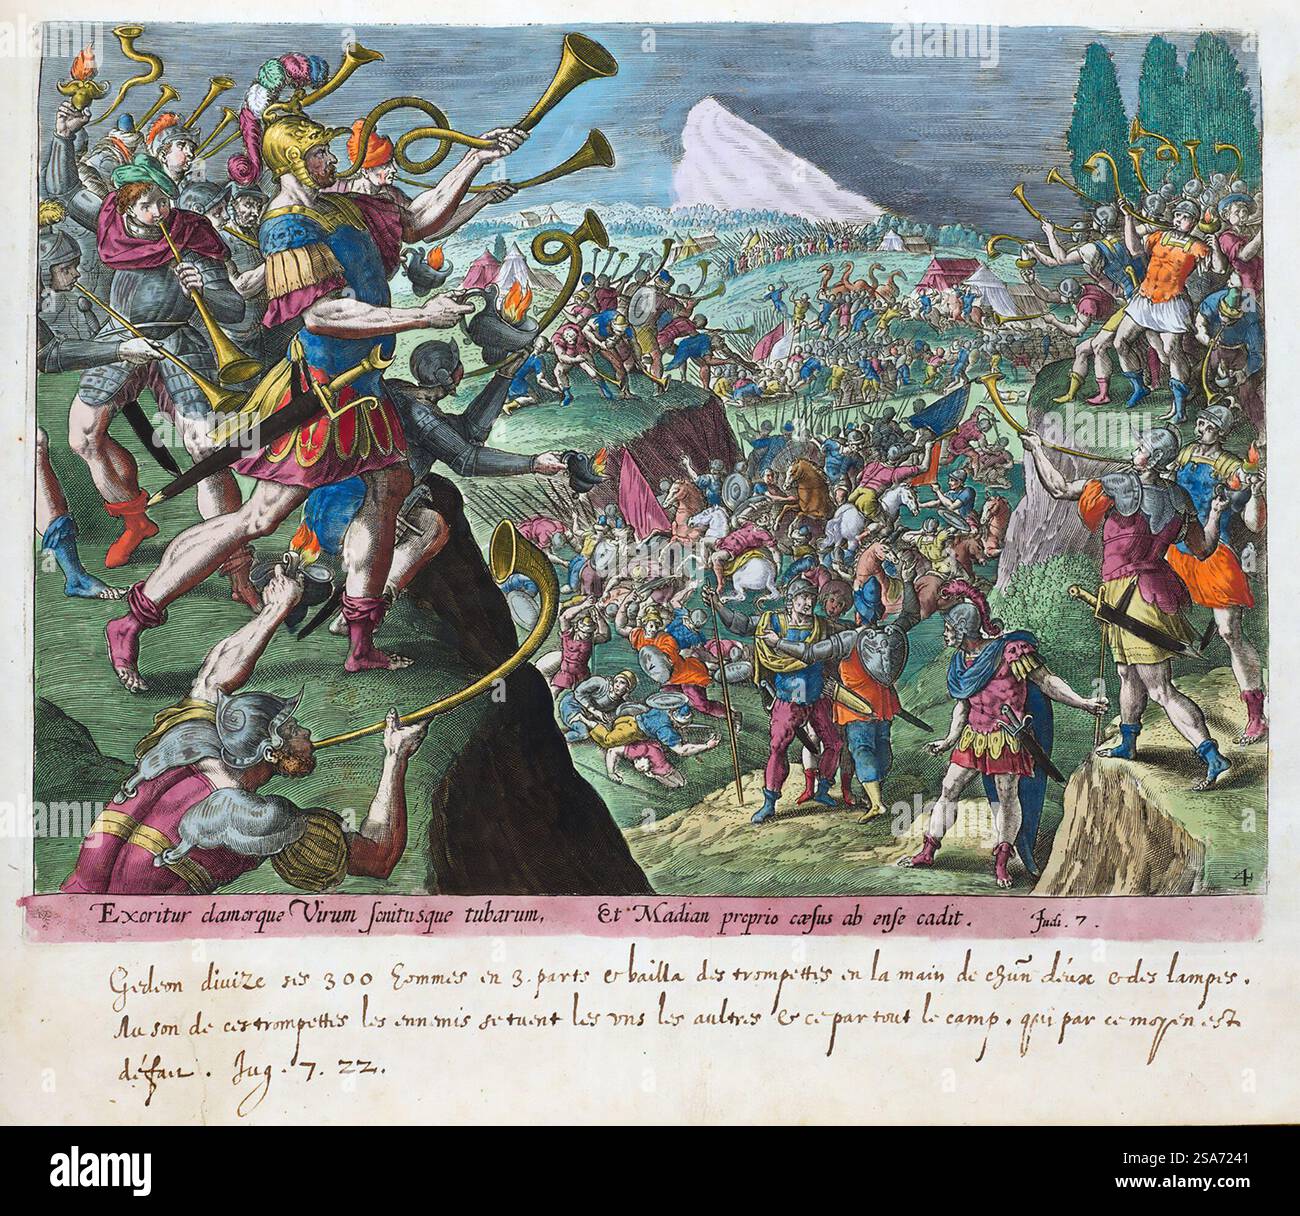 4
Exoritur clamorque Virum sonitusque tubarum, Et Madian proprio cæsus ab ense cadit. Judi. 7.
Gedeon diuize ses 300 hommes en 3. parts & bailla des trompettes en la main de chũn d'éux & des lampes.
Au son de ces trompettes les ennemis se tuent les vns les aultres & ce par tout le camp. qui par ce moyen est
défait. Jug. 7. 22.
alamy
Image ID: 2SA7241
www.alamy.com